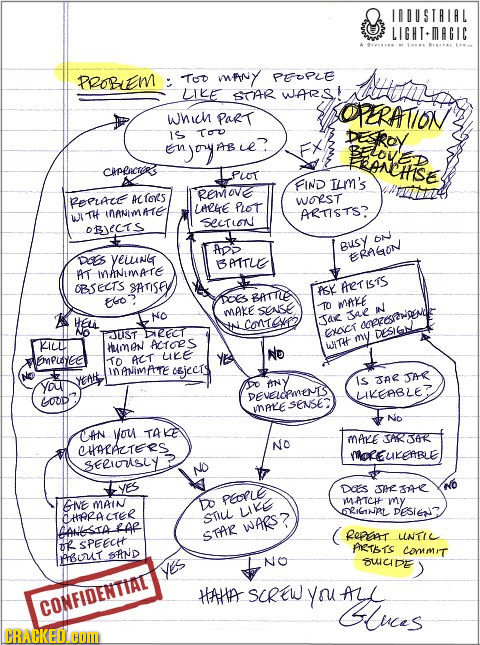 INDUSTRIAL
LIGHT+MAGIC
A DIVISION OF LUCAS DIGITAL LTD.
PROBLEM: TOO MANY PEOPLE
LIKE STAR WARS!
OPERATION
DESTROY
BELOVED
FRANCHISE
WHICH PART
IS TOO
ENJOYABLE?
FX
CHARACTERS
PLOT
REPLACE ACTORS
WITH INANIMATE
OBJECTS
REMOVE
LARGE PLOT
SECTION
FIND ILM'S
WORST
ARTISTS?
BUSY ON
ERAGON
DOES YELLING
AT INANIMATE
OBJECTS SATISFY
EGO?
ADD
BATTLE
ASK ARTISTS
TO MAKE
JAR JAR IN
EXACT CORRESPONDENCE
WITH MY DESIGN
DOES BATTLE
MAKE SENSE
IN CONTEXT?
HELL
NO
NO
KILL
EMPLOYEE
JUST DIRECT
HUMAN ACTORS
TO ACT LIKE
INANIMATE OBJECTS
YES
NO
NO
YOU
GOOD?
YEAH
DO ANY
DEVELOPMENTS
MAKE SENSE?
IS JAR JAR
LIKEABLE?
NO
CAN YOU TAKE
CHARACTERS
SERIOUSLY?
NO
NO
MAKE JAR JAR
MORE LIKEABLE
YES
GIVE MAIN
CHARACTER
GANGSTA RAP
OR SPEECH
ABOUT SAND
DO PEOPLE
STILL LIKE
STAR WARS?
DOES JAR JAR
MATCH MY
ORIGINAL DESIGN?
NO
(REPEAT UNTIL
ARTISTS COMMIT
SUICIDE)
YES
NO
HAHA SCREW YOU ALL
GLucas
CONFIDENTIAL
CRACKED.com